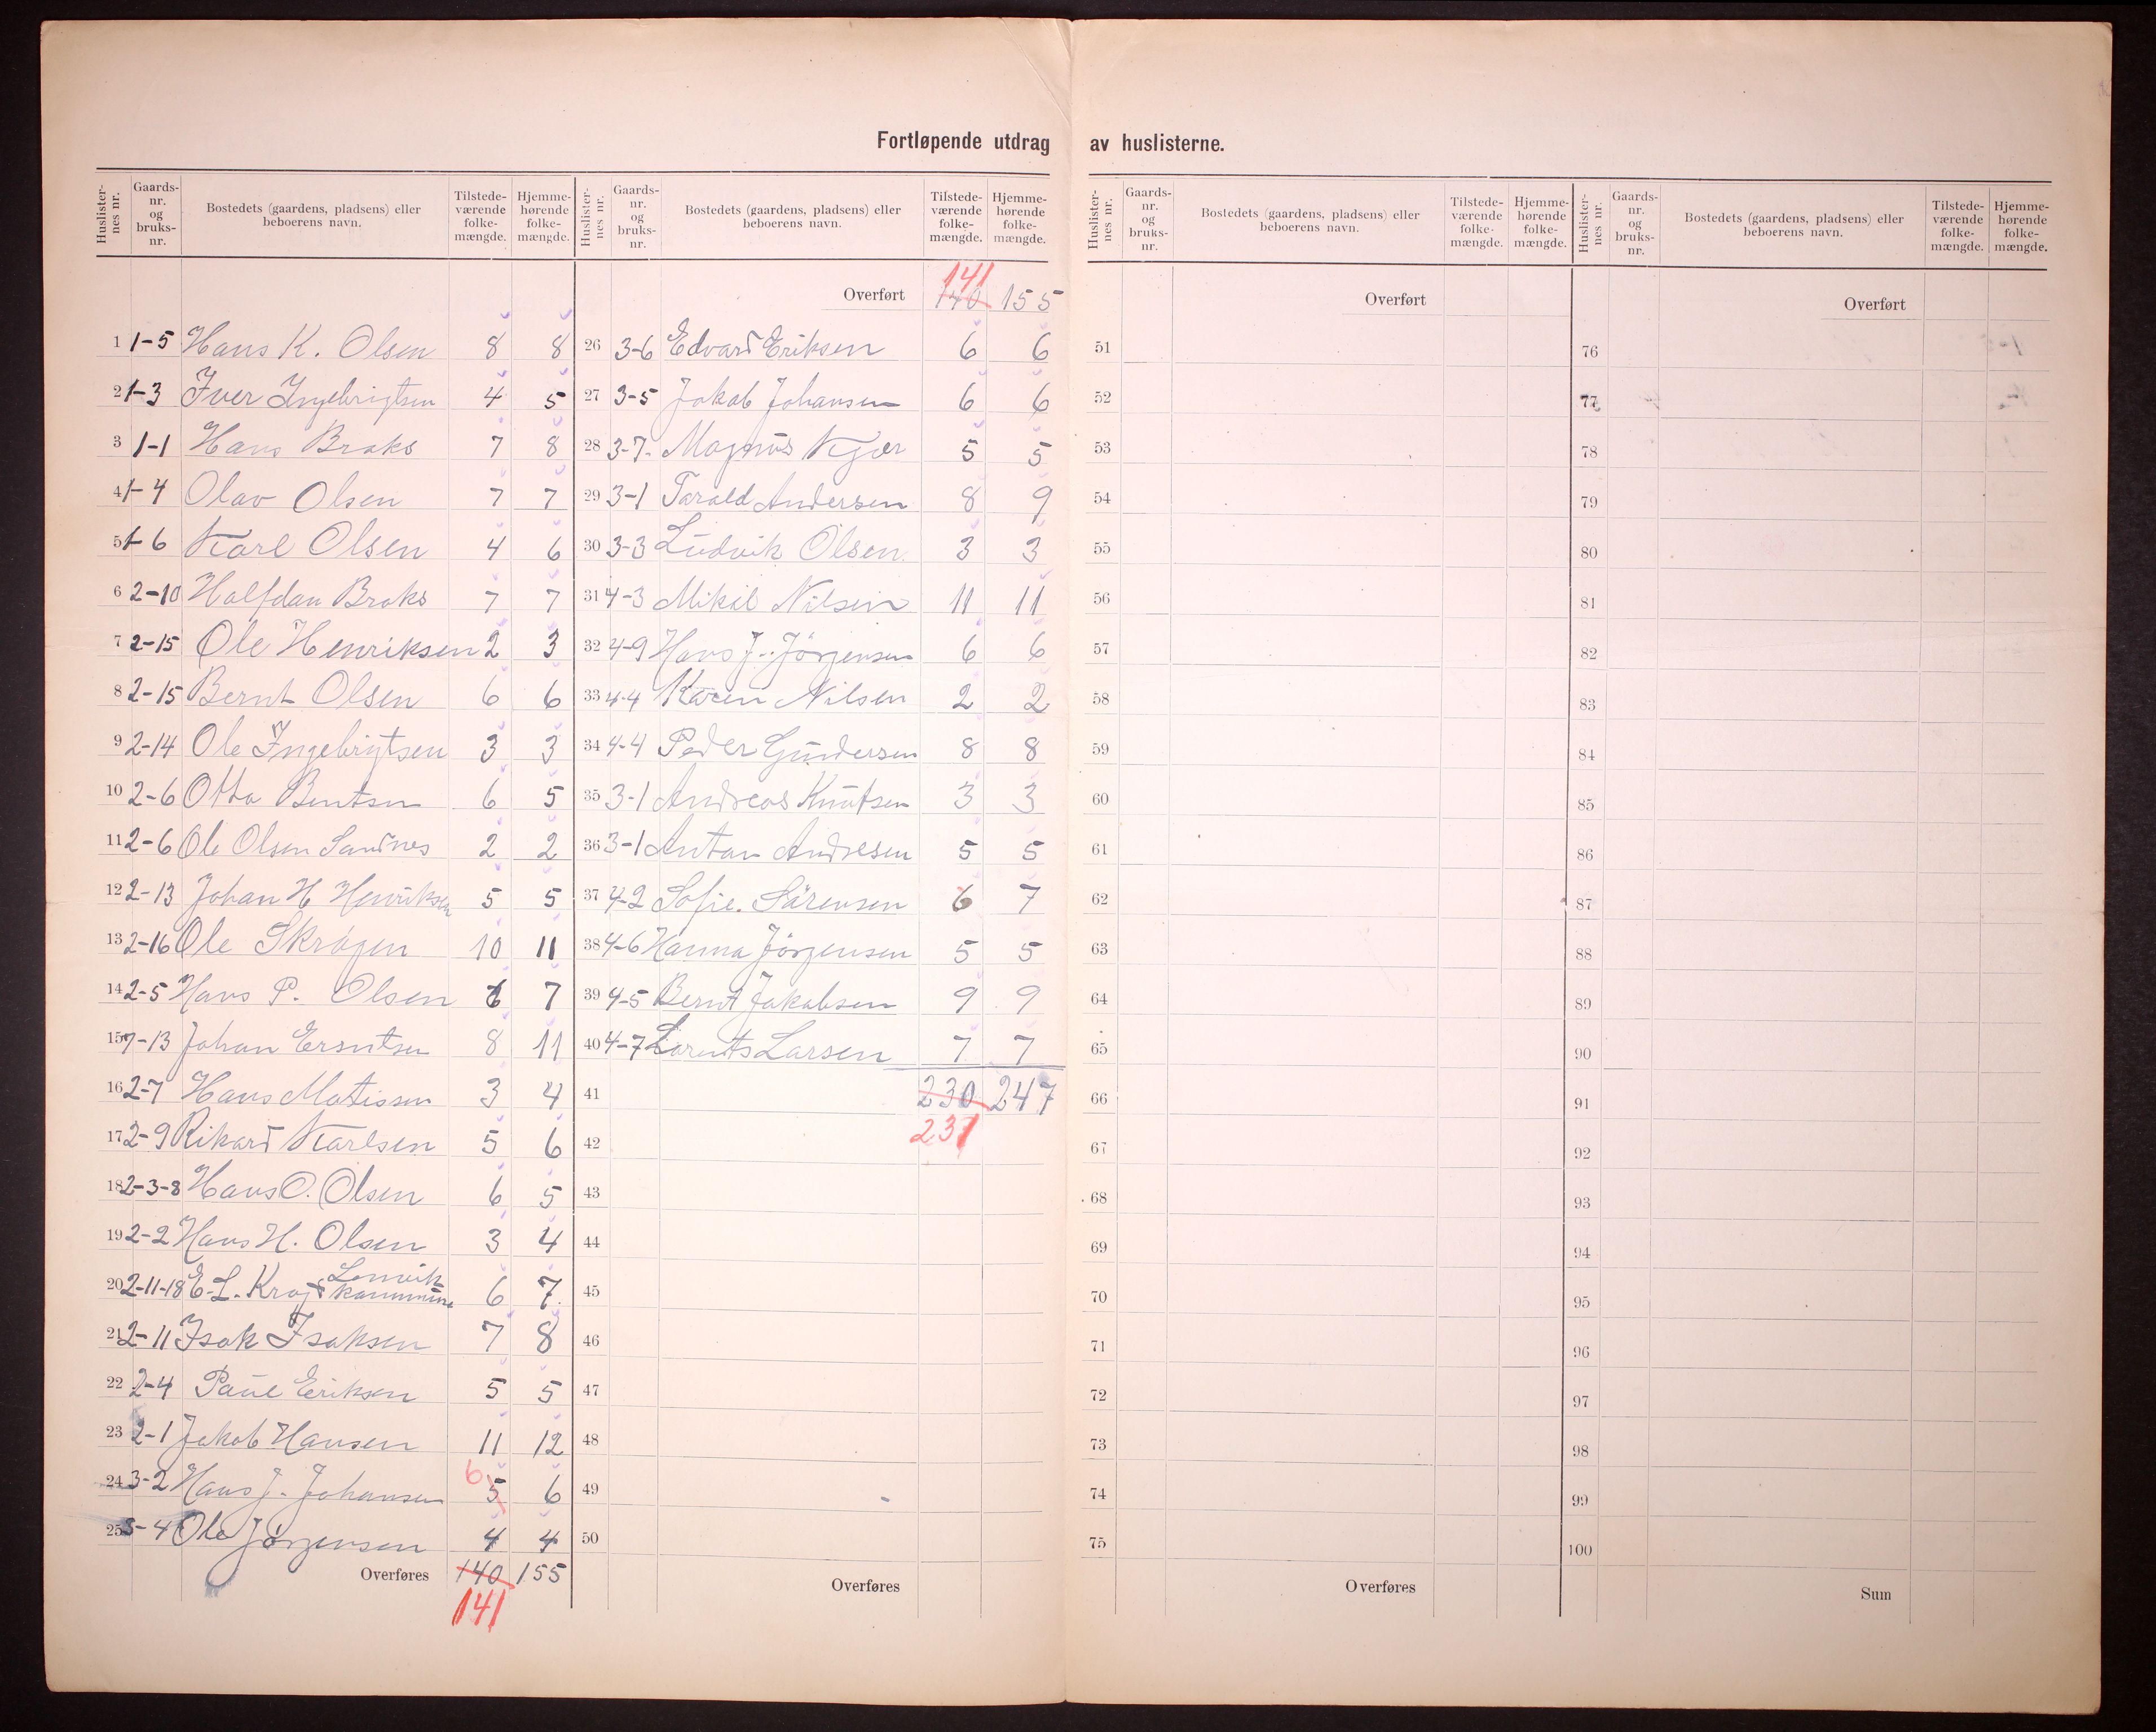 Fortløpende utdrag av huslisterne.
Huslister-nes nr. Gaards-nr. og bruks-nr. Bostedets (gaardens, pladsens) eller beboerens navn. Tilstede-værende folke-mængde. Hjemme-hørende folke-mængde.
1 1-5 Hans K. Olsen 8 8
2 1-3 Iver Ingebrigtsen 4 5
3 1-1 Hans Braks 7 8
4 1-4 Olav Olsen 7 7
5 1-6 Karl Olsen 4 6
6 2-10 Halfdan Braks 7 7
7 2-15 Ole Henriksen 2 3
8 2-15 Bernt Olsen 6 6
9 2-14 Ole Ingebrigtsen 3 3
10 2-6 Otto Bentsen 6 5
11 2-6 Ole Olsen Sandnes 2 2
12 2-13 Johan H Henriksen 5 5
13 2-16 Ole Skrogen 10 11
14 2-5 Hans P. Olsen 6 7
15 7-13 Johan Ersntsen 8 11
16 2-7 Hans Matissen 3 4
17 2-9 Rikard Karlsen 5 6
18 2-3-8 Hans O. Olsen 6 5
19 2-2 Hans H. Olsen 3 4
20 2-11-18 E. L. Krog & Lenvik kommune 6 7
21 2-11 Isak Isaksen 7 8
22 2-4 Paul Eriksen 5 5
23 2-1 Jakob Hansen 11 12
24 3-2 Hans J. Johansen 5 6 6
25 3-4 Ole Jørgensen 4 4
Overføres 140 155
141
Huslister-nes nr. Gaards-nr. og bruks-nr. Bostedets (gaardens, pladsens) eller beboerens navn. Tilstede-værende folke-mængde. Hjemme-hørende folke-mængde.
141
Overført 140 155
26 3-6 Edvard Eriksen 6 6
27 3-5 Jakob Johansen 6 6
28 3-7. Magnus Kjær 5 5
29 3-1 Tarald Andersen 8 9
30 3-3 Ludvik Olsen 3 3
31 4-3 Mikal Nilsen 11 11
32 4-9 Hans J. Jörgensen 6 6
33 4-4 Karen Nilsen 2 2
34 4-4 Peder Gundersen 8 8
35 3-1 Andreas Knutsen 3 3
36 3-1 Anton Andresen 5 5
37 4-2 Sofie. Särensen 6 7
38 4-6 Hanna Jörgensen 5 5
39 4-5 Bernt Jakobsen 9 9
40 4-7 Lornts Larsen 7 7
41 230 247
42 231
43
44
45
46
47
48
49
50
Overføres
Huslister-nes nr. Gaards-nr. og bruks-nr. Bostedets (gaardens, pladsens) eller beboerens navn. Tilstede-værende folke-mængde. Hjemme-hørende folke-mængde.
Overført
51
52
53
54
55
56
57
58
59
60
61
62
63
64
65
66
67
68
69
70
71
72
73
74
75
Overføres
Huslister-nes nr. Gaards-nr. og bruks-nr. Bostedets (gaardens, pladsens) eller beboerens navn. Tilstede-værende folke-mængde. Hjemme-hørende folke-mængde.
Overført
76
77
78
79
80
81
82
83
84
85
86
87
88
89
90
91
92
93
94
95
96
97
98
99
100
Sum